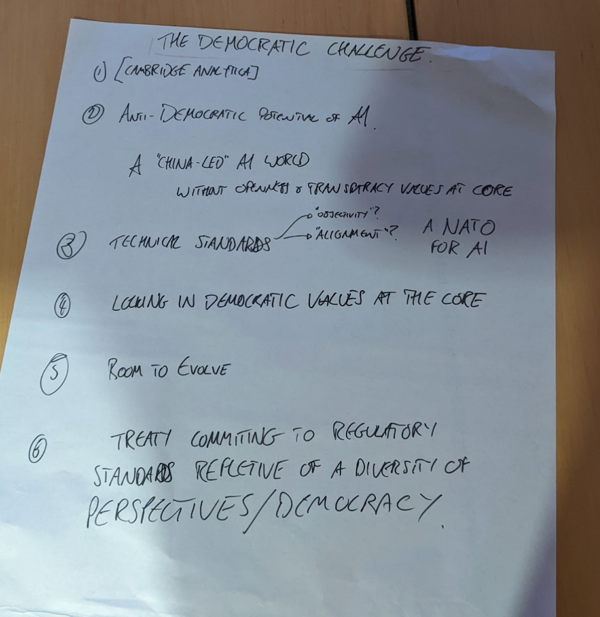 THE DEMOCRATIC CHALLENGE.
① [CAMBRIDGE ANALYTICA]
② ANTI-DEMOCRATIC POTENTIAL OF AI.
A "CHINA-LED" AI WORLD
WITHOUT OPENNESS & TRANSPARACY VALUES AT CORE
③ TECHNICAL STANDARDS
"OBJECTIVITY"?
"ALIGNMENT"?
A NATO
FOR AI
④ LOCKING IN DEMOCRATIC VALUES AT THE CORE
⑤ ROOM TO EVOLVE
⑥ TREATY COMMITING TO REGULATORY
STANDARDS REFLETIVE OF A DIVERSITY OF
PERSPECTIVES/DEMOCRACY.